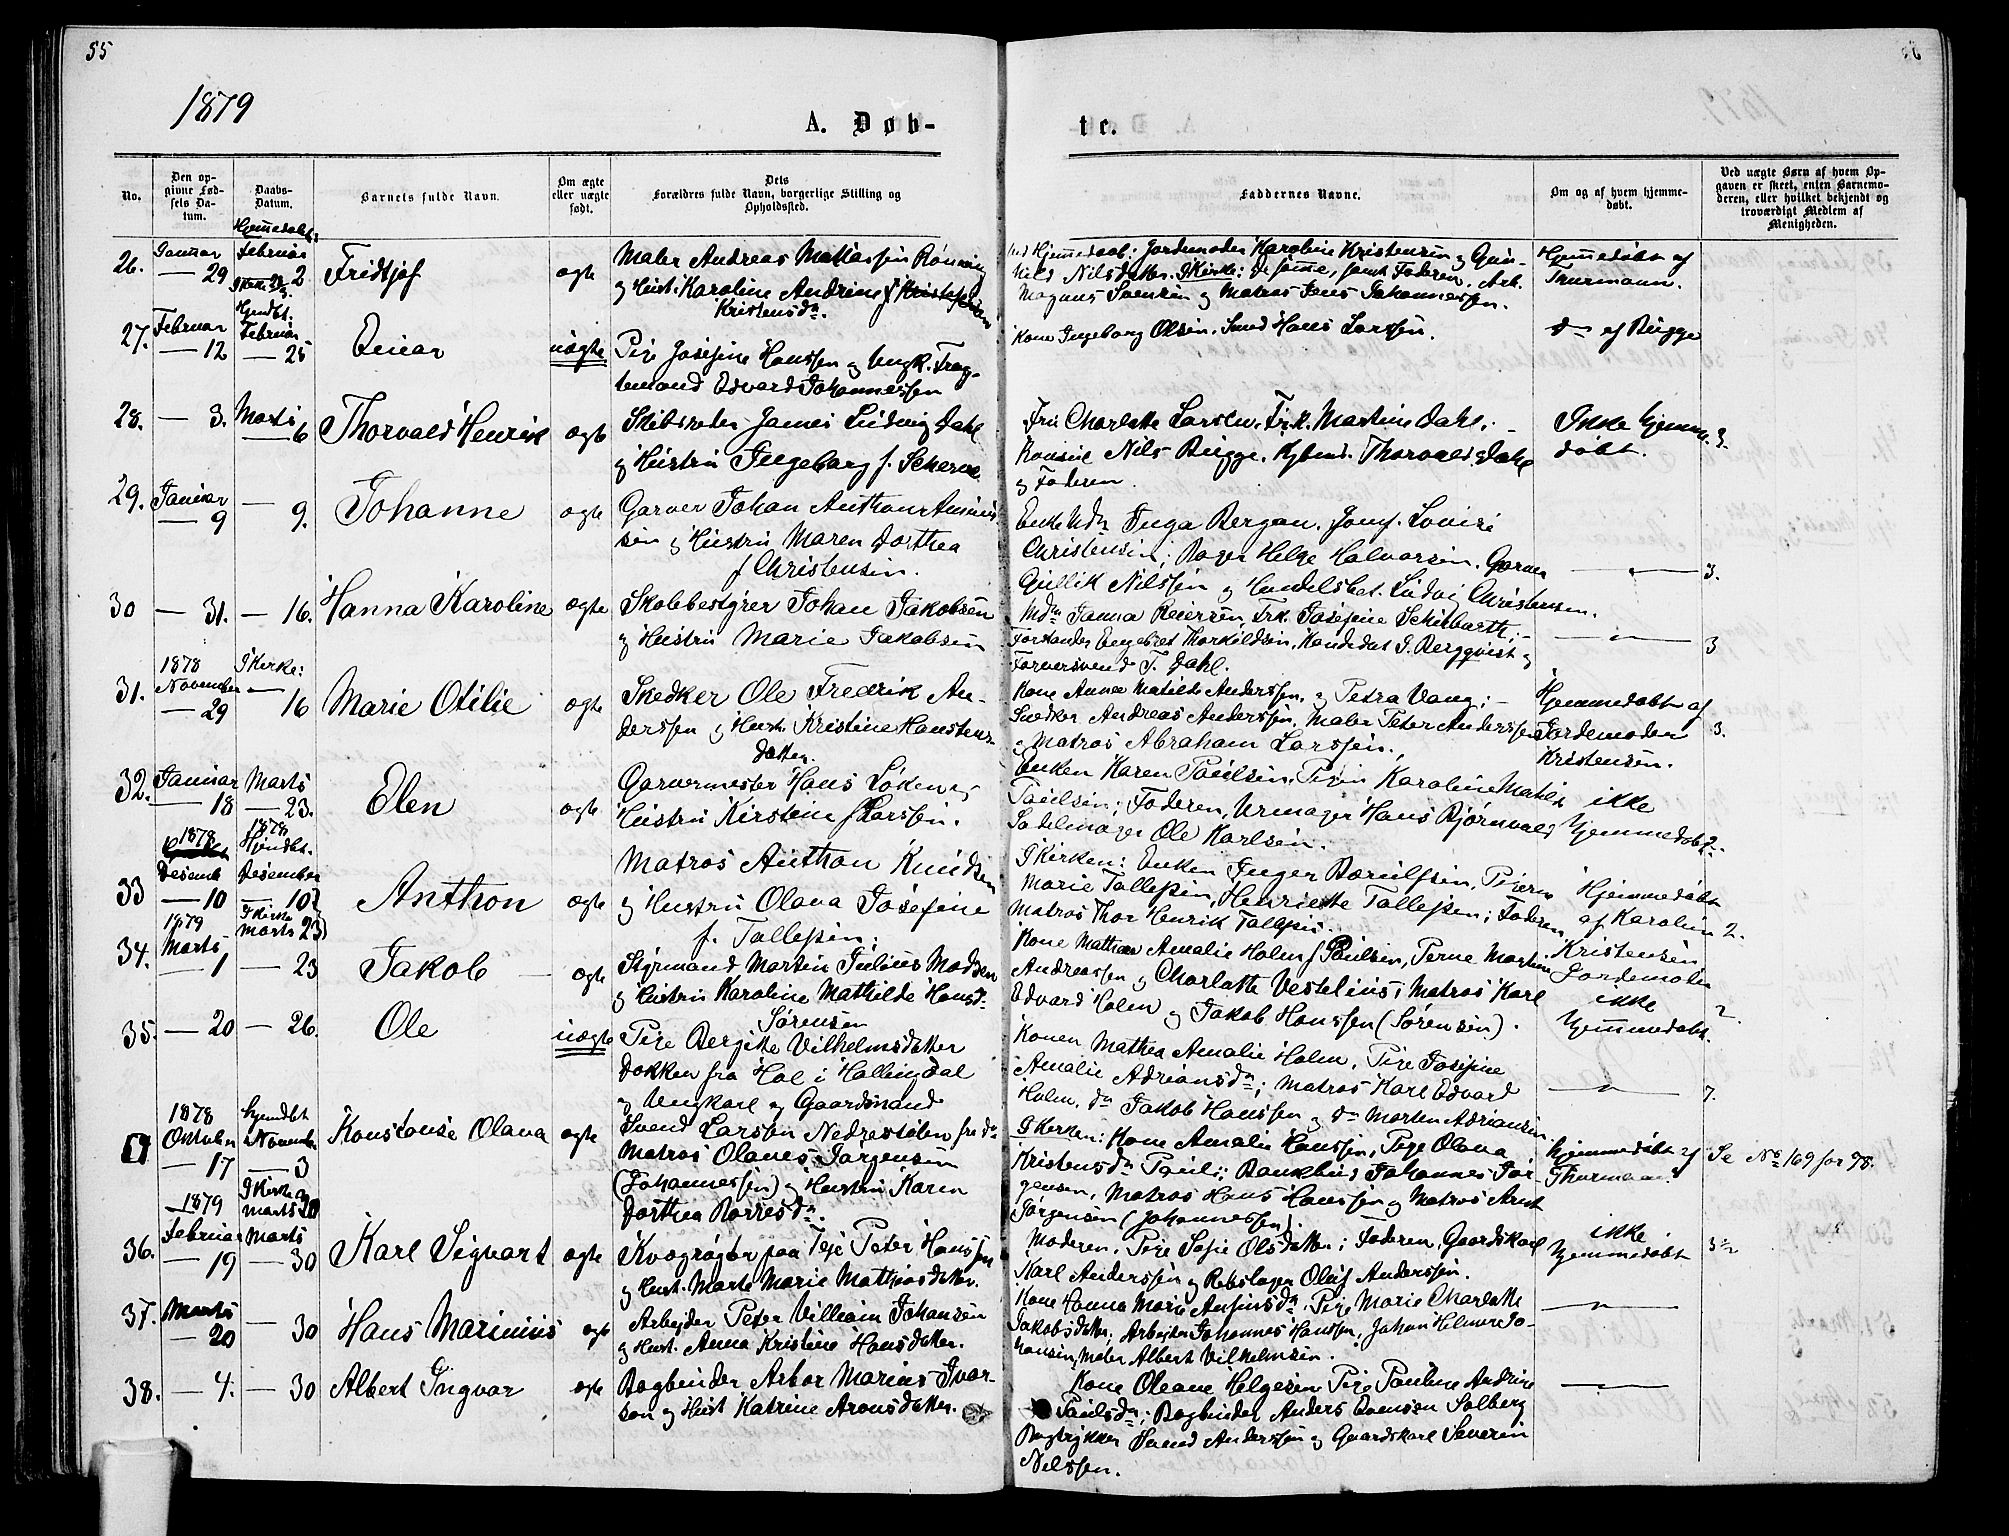 55
56
1879
A. Døb-
te.
No.
Den op-
givne Fød-
sels Da-
tum.
Daabs-
Datum.
Barnets fulde Navn.
Om ægte
eller uægte
født.
Dets
Forældres fulde Navn, borgerlige Stilling og
Opholdssted.
Faddernes Navne.
Om og af hvem hjemme-
døbt.
Ved uægte Børn af hvem Op-
gaven er skeet, enten Barnemo-
deren, eller hvilket bekjendt og
troværdigt Medlem af
Menigheden.
26.
Januar
— 29
Hjemmedøbt:
Februar
2
Fridtjof
ægte
Maler Andreas Mathiassen Rønning
og Hust. Karoline Andrine
Kristensdr.
ved Hjemmedaab: Jordemoder Karoline Kristensen og Gun-
hild Nilsdatter. I Kirke: de samme, samt Faderen, Arb.
Magnus Svensen og Matros Jens Johannessen.
Hjemmedøbt af
Thurmann.
27.
Februar
— 12
Hjmdbt.
Februar
— 25
Einar
uægte
Pige Josefine Hanssen og Ungk. Frag-
temand Edvard Johannessen
Kone Ingeborg Olsen. Smed Hans Larssen.
do af Bugge
28.
— 3.
Marts
— 6
Thorvald Henrik
ægte
Skibsreder James Ludvig Dahl
og Hustru Ingeborg f. Scherve
Fru Charlotte Larsen, Frk. Martine Dahl;
Konsul Nils Bugge, Kjbmd. Thorvald Dahl
og Faderen
Ikke hjemme-
døbt.
3.
29.
Januar
— 9
— 9.
Johanne
ægte
Garver Johan Anthon
sen og Hustru Maren Dorthea
f Christensen.
Enke Mdm Inga Bergan, Jomf. Lovise
Christensen; Bager Helge Halvorsen, Garver
Gullik Nilssen og Handelsbet. Ludvig Christensen.
— " —
3.
30
— 31.
— 16.
Hanna Karoline
ægte
Skolebestyrer Johan Jakobsen
og Hustru Marie Jakobsen
Mdm Janna Reiersen, Frk. Josefine Schibarth;
Forstander Engebret Thorkildsen, Kandidat J. Bergqvist og
Farversvend T. Dahl.
— " —
3
31.
1878
November
— 29
I Kirke:
—
16
Marie Otilie
ægte
Snedker Ole Fredrik An-
derssen og Hust. Kristine Hanstens-
datter.
Kone Anne Matilde Anderssen, og Petra Vang;
Snedker Andreas Anderssen, Maler Peter Anderssen
og Matros Abraham Larssen.
Hjemmedøbt af
Jordemoder
Kristensen.
3.
32.
Januar
— 18
Marts
— 23.
Elen
ægte
Garvermester Hans Løken og
Hustru Kirstine f Larssen.
Enken Karen Paulsen, Pigen Karoline Matilde
Paulsen; Faderen, Urmager Hans Bjørnvald
Sadelmager Ole Karlsen.
ikke
hjemmedøbt
2.
33
1878
Desemb
— 10
1878
Hjmdbt.
Desember
— 10
I Kirke
Marts 23
Anthon
ægte
Matros Anthon Knudsen
og Hustru Olava Josefine
f. Tallefsen.
I Kirken: Enken Inger Bærulfsen, Pigerne
Marie Tallefsen, Henriette Tallefsen; Faderen,
Matros Thor Henrik Tallefsen.
Hjemmedøbt
af Karoline
Kristensen
Jordemoder
2.
34.
1879
Marts
— 1
— 23
Jakob
ægte
Styrmand Martin Julius Madsen
og Hustru Karoline Mathilde Hansdr.
Sørensen
Kone Mathea Amalie Holm f Paulsen, Perne Martine
Andreassen og Charlotte Vestelius; Matros Karl
Edvard Holm og Jakob Hanssen (Sørensen).
ikke
hjemmedøbt.
2.
35.
— 20
— 26.
Ole
uægte
Pige Bergitte Vilhelmsdatter
Dokken fra Hol i Hallingdal
og Ungkarl og Gaardmand
Svend Larsen Nedrestølen fra do
Konen Mathea Amalie Holm, Pige Josefine
Amalie Adriansdr; Matros Karl Edvard
Holm, do Jakob Hanssen og do Morten Adriansen.
— " —
7.
1878
Oktober
— 17
hjmdbt
November
— 3
I Kirke
Marts
Konstanse Olava
ægte
Matros Olaves Jørgensen
(Johannessen) og Hustru Karen
Dorthea Borresdr.
I Kirken: Kone Amalie Hanssen, Pige Olava
Kristensdr Paul; Johannes Jør-
gensen, Matros Hans Hanssen og Matros Arnt
Jørgensen (Johannessen).
hjemmedøbt af
Thurmann
Se No 169 for 78.
36.
1879
Februar
— 19
Marts
— 30
Karl Sigvart
ægte
Kvægrøgter paa Teje Peter Hanssen
og Hust. Marte Marie Mathiasdatter.
Moderen, Pige Sofie Olsdatter; Faderen, Gaardskarl
Karl Anderssen og Rebslager Oluf Anderssen.
ikke
hjemmedøbt
37.
Marts
— 20
— 30
Hans Marinius
ægte
Arbejder Peter Villiam Johansen
og Hust. Anna Kristine Hansdatter.
Kone Hanna Marie Ansinsdr, Pige Marie Charlotte
Jakobsdatter; Arbejder Johannes Hanssen, Johan Hilmar Jo-
hansen, Maler Albert Vilhelmsen.
— " —
38.
— 4.
— 30
Albert Ingvar
ægte
Bogbinder Arbor Marius Ivar-
sen og Hust Katrine Aronsdatter.
Kone Oleane Helgesen Pige Pauline Andrine
Paulsdr; Bogbinder Anders Evensen Solberg
Bogtrykker Svend Anderssen og Gaardskarl Severin
Nilssen.